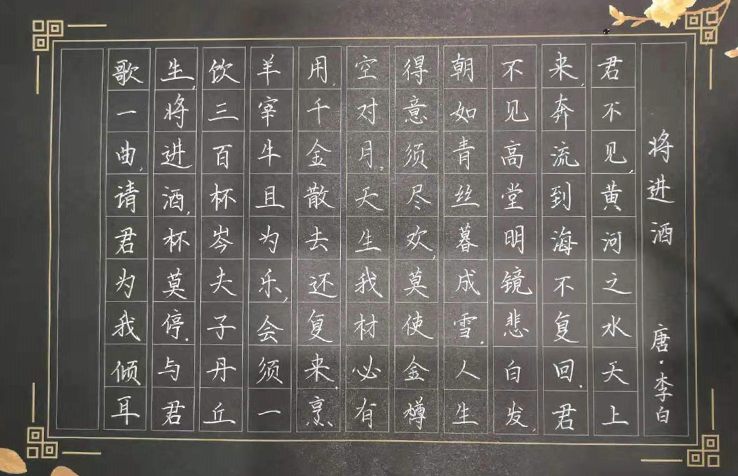 将进酒 唐·李白
君不见,黄河之水天上
来,奔流到海不复回.君
不见高堂明镜悲白发,
朝如青丝暮成雪.人生
得意须尽欢,莫使金樽
空对月.天生我材必有
用,千金散去还复来.烹
羊宰牛且为乐,会须一
饮三百杯岑夫子丹丘
生,将进酒,杯莫停.与君
歌一曲,请君为我倾耳